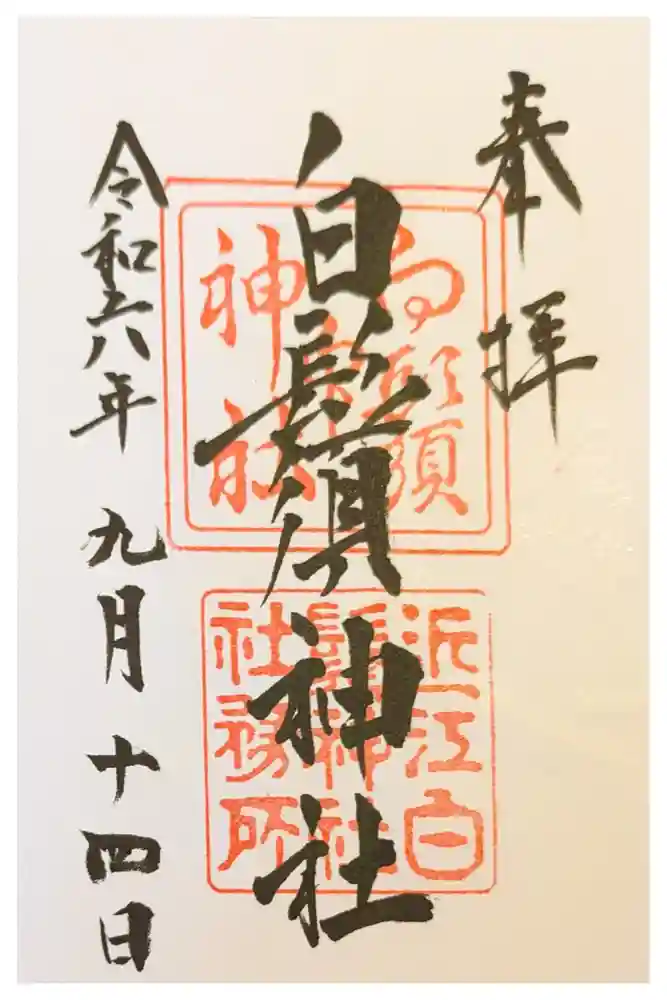 奉拝
白鬚神社
令和六年九月十四日
近江白
鬚神社
社務所